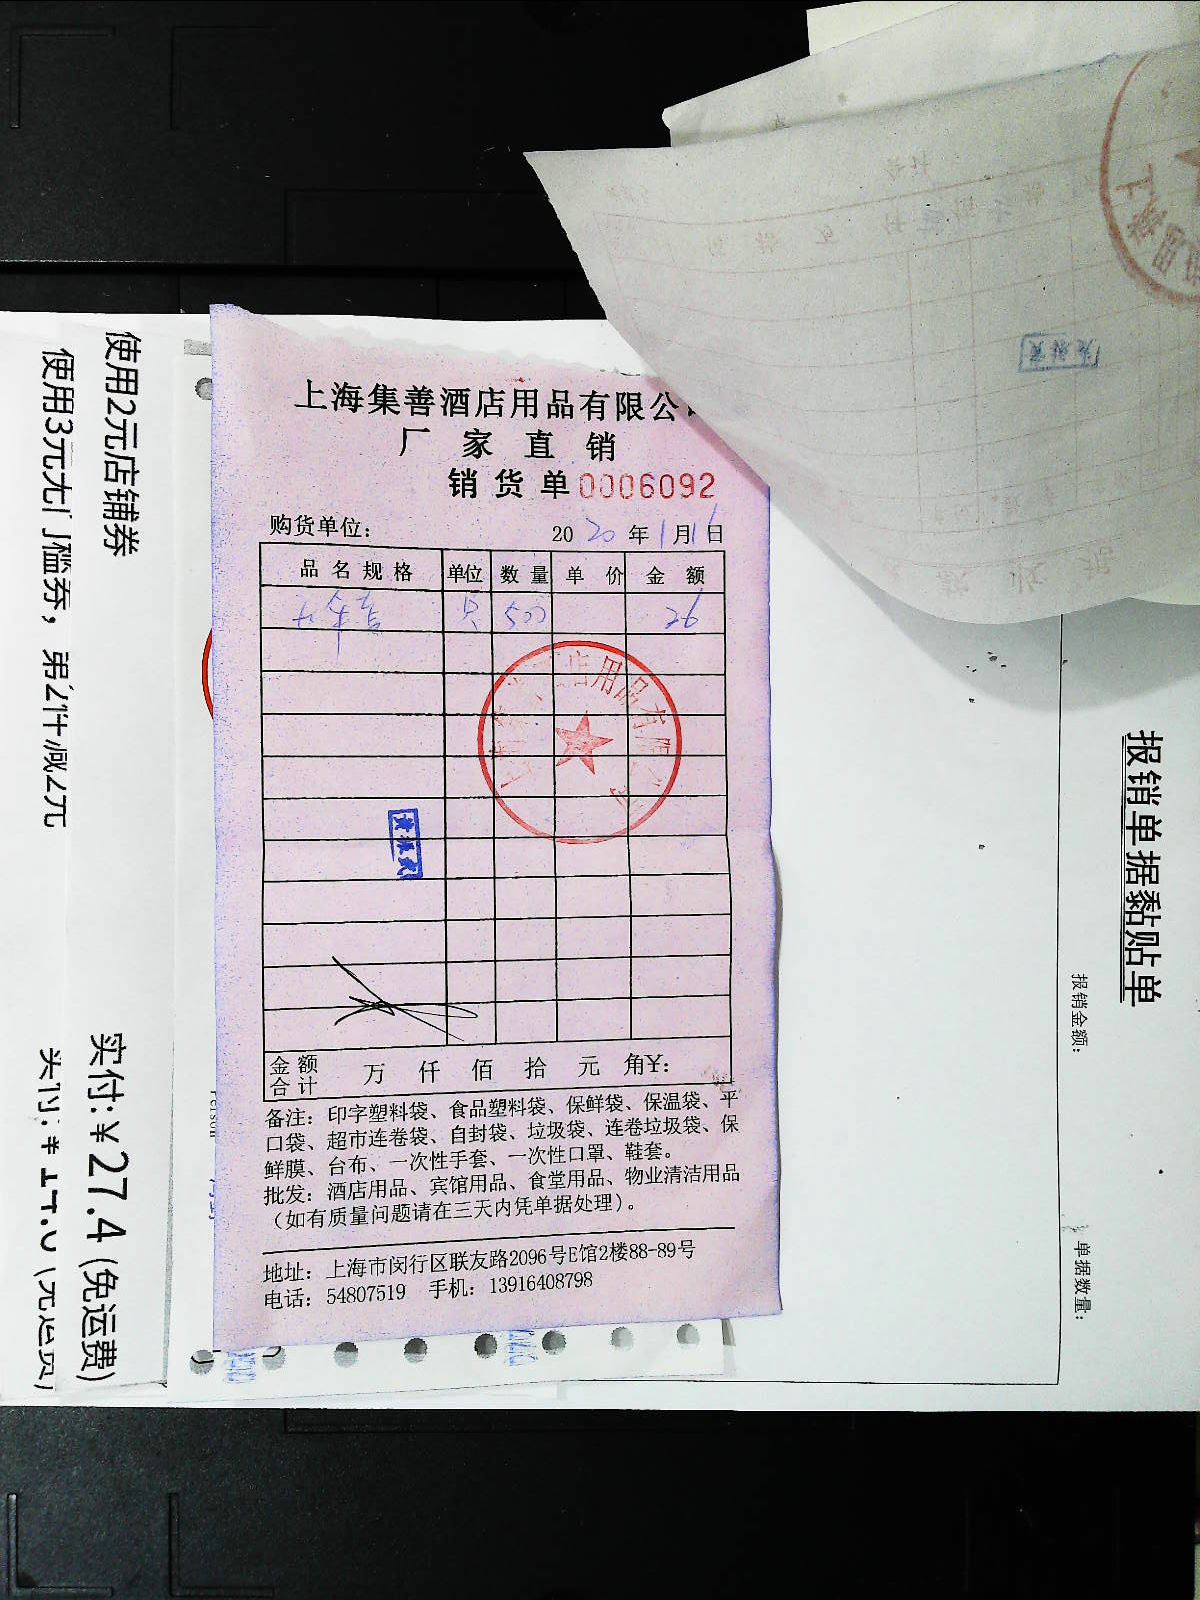 上海集善酒店用品有限公
厂家直销
销货单0006092
购货单位: 2020年1月16日
品名规格 单位 数量 单价 金额
500 26
黄振武
金额合计 万 仟 佰 拾 元 角¥:
备注: 印字塑料袋、食品塑料袋、保鲜袋、保温袋、平
口袋、超市连卷袋、自封袋、垃圾袋、连卷垃圾袋、保
鲜膜、台布、一次性手套、一次性口罩、鞋套。
批发: 酒店用品、宾馆用品、食堂用品、物业清洁用品
（如有质量问题请在三天内凭单据处理）。
地址: 上海市闵行区联友路2096号E馆2楼88-89号
电话: 54807519 手机: 13916408798
使用2元店铺券
使用3元无门槛券，第2件减2元
实付:¥27.4(免运费)
报销单据黏贴单
报销金额:
单据数量: